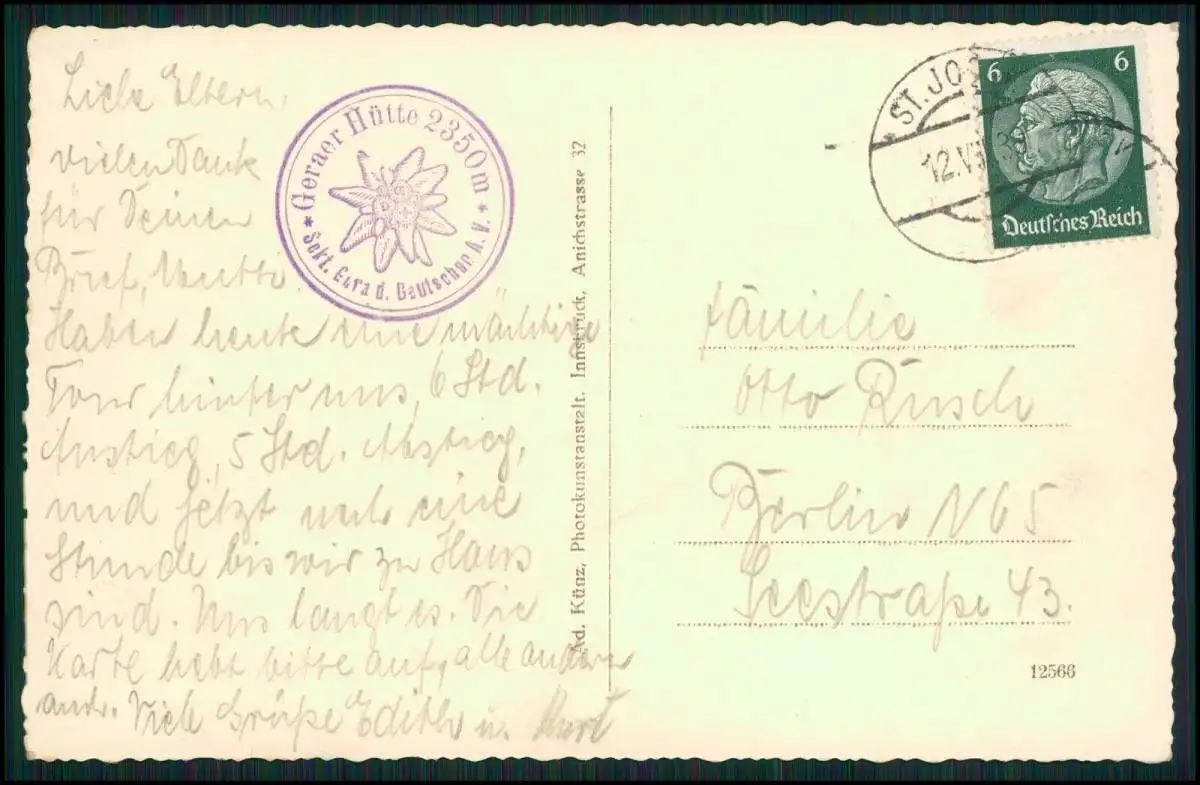 Liebe Eltern,
vielen Dank
für Deinen
Brief, Mutti.
Haben heute eine mächtige
Tour hinter uns, 6 Std.
Anstieg, 5 Std. Abstieg,
und jetzt noch eine
Stunde bis wir zu Haus
sind. Uns langt es. Die
Karte hebt bitte auf, alle andern
auch. Viele Grüße Edith u. Kurt
* Geraer Hütte 2350m *
Sekt. Gera d. Deutschen A.V.
Ad. Künz, Photokunstanstalt. Innsbruck, Anichstrasse 32
ST. JO
12.VII
6 6
Deutsches Reich
Familie
Otto Rusch
Berlin N65
Seestraße 43.
12566